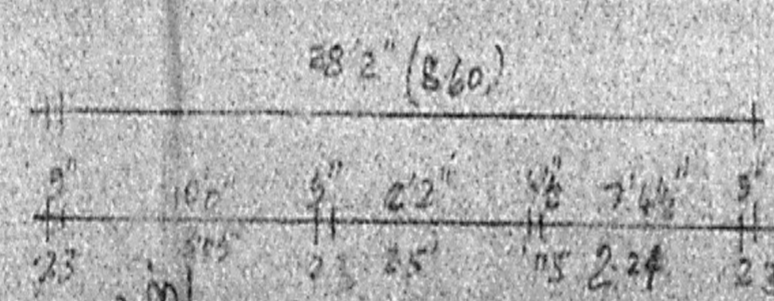 28'2" (8.60)
9" 10'0" 9" 8'2" 4½" 7'4½" 9"
.23 3.05 .23 2.5 .115 2.24 .23